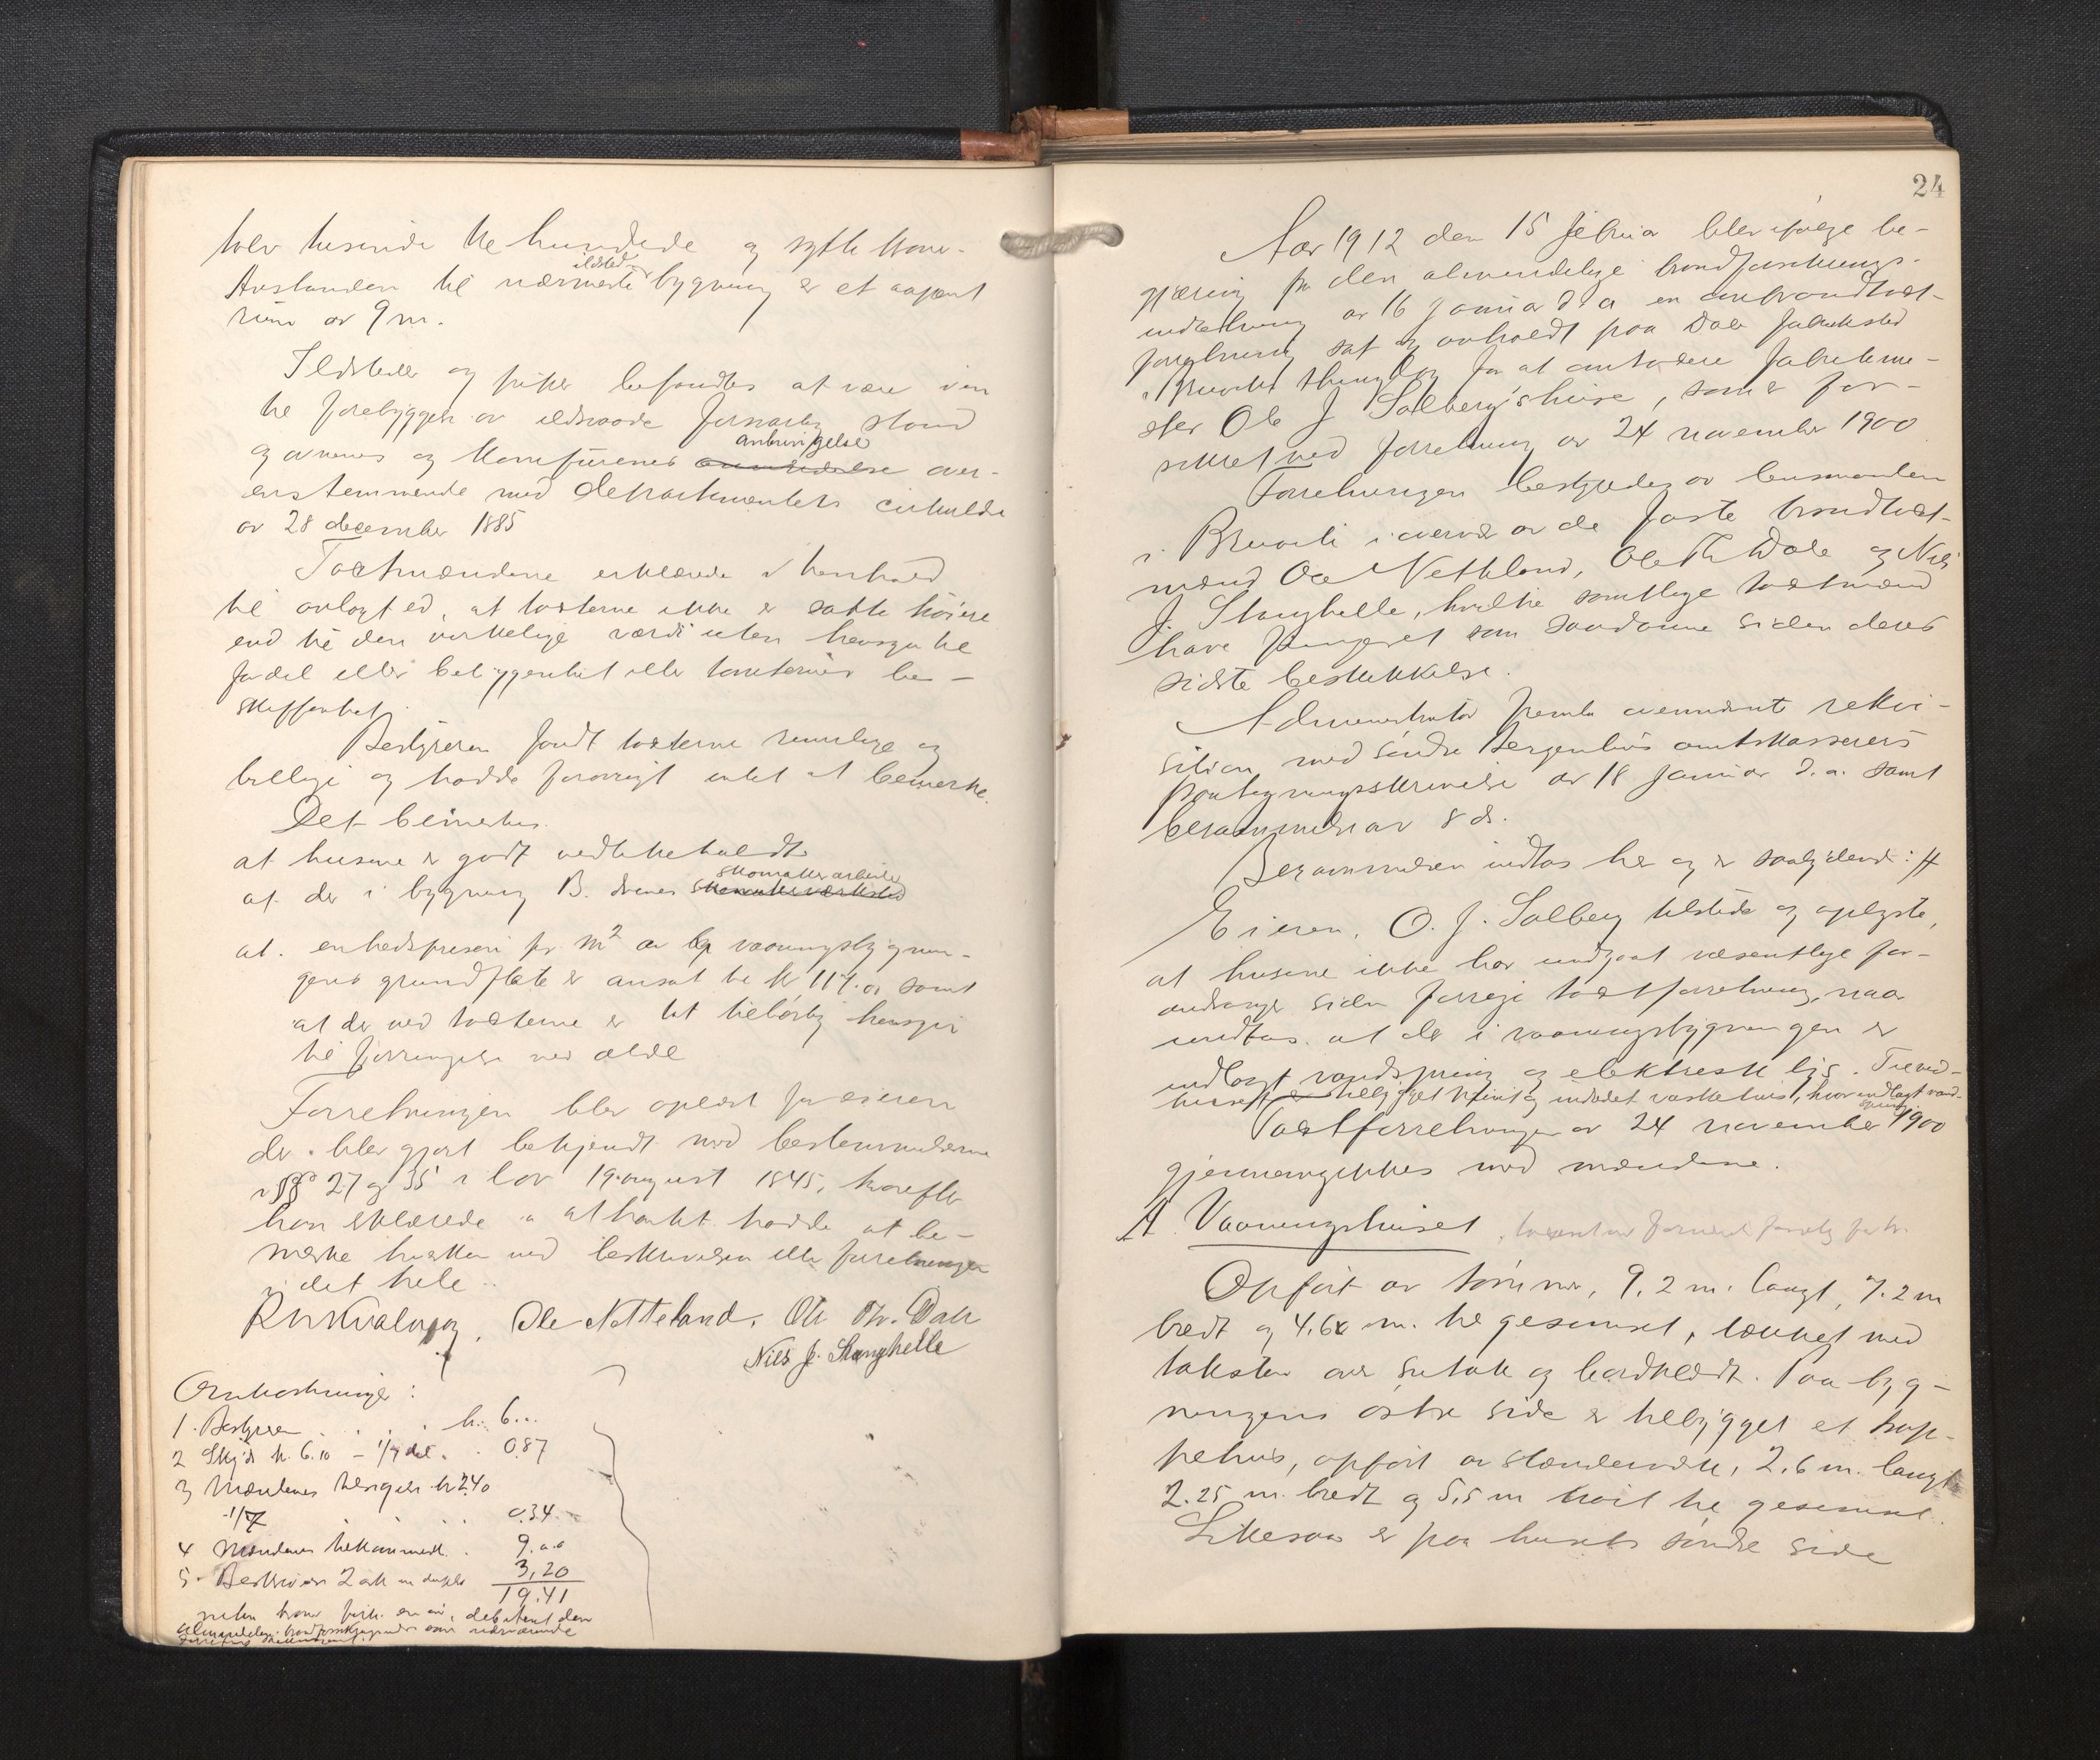 tolv tusende tre hundrede og sytti kroner.
Avstanden til nærmeste ildsteds bygning er et aapent
rum av 9 m.
Ildsteder og piper befandtes at være i en
til forebyggelse av ildsvaade forsvarlig stand
og ovnenes og komfurenes anbringelse over-
ensstemmende med departementets cirkulære
av 28 december 1885
Takstmændene erklærede i henhold
til avlagt ed, at taksterne ikke er satte høiere
end til den virkelige værdi uten hensyn til
fordel eller beliggenhet eller tomternes be-
skaffenhet.
Bestyreren fandt taksterne rimelige og
billige og hadde forøvrigt intet at bemerke.
Det bemerkes
at husene er godt vedlikeholdt
at der i bygning B. drives skomakerarbeide
at enhedsprisen pr. m2 av vaaningsbygnin-
gens grundflate er ansat til kr 117.00 samt
at der ved taksterne er tat tilbørlig hensyn
til forringelse ved ælde
Forretningen blev oplæst for eieren
der blev gjort bekjendt med bestemmelserne
i §§ 27 og 35 i lov 19 august 1845, hvorefter
han erklærede at intet hadde at be-
merke hverken ved beskrivelsen eller forretningen
i det hele.
Ole Netteland. Ole Th. Dale
Nils J. Stanghelle
Omkostninger:
1. Bestyreren . . . . kr. 6...
2 Skyds kr. 6.10 - 1/7 del . . 0.87
3 Mændenes kr 2.40
1/7 . . 0.34
4 Mændenes . 9.00
5. Beskrivelse 2 ark in duplo 3,20
19.41
24
Aar 1912 den 15 februar blev ifølge be-
gjæring fra den almindelige brandforsikrings-
indretning av 16 januar d. a. en ombrandtakst-
forretning sat og avholdt paa Dale fabriksted
i Bruvik thinglag for at omtaksere fabrikme-
ster Ole J Solbergs huse, som er for-
sikret ved forretning av 24 november 1900
Forretningen bestyredes av lensmanden
i Bruvik i overvær av de faste brandtakst-
mænd Ole Netteland, Ole Th Dale og Nils
J. Stanghelle, hvilke samtlige takstmænd
have fungeret som saadanne siden deres
sidste beskikkelse.
Administrator fremla ovennævnte rekvi-
sition med søndre Bergenhus amtskasserers
paategningsskrivelse av 18 januar d. a. samt
berammelse av 8 ds.
Berammelsen indtas her og er saalydende: #
Eieren, O. J. Solberg tilstede og oplyste,
at husene ikke har undgaat væsentlige for-
andringer siden forrige takstforretning, naar
undtas at der i vaaningsbygningen er
indlagt vandspring og elektrisk lys. I ved-
huset er tilbygget og indredet vaskehus, hvor indlagt vand-
spring
Takstforretningen av 24 november 1900
gjennemgikkes med mændene.
A Vaaningshuset
Opført av tømmer, 9.2 m. langt, 7.2 m
bredt og 4.60 m. til gesimset, tækket med
taksten over sutak og bordklædt. Paa byg-
ningens østre side er tilbygget et trap-
pehus, opført av stænderverk, 2.6 m. langt
2.25 m. bredt og 5,5 m høit til gesimset.
Likesaa er paa husets søndre side